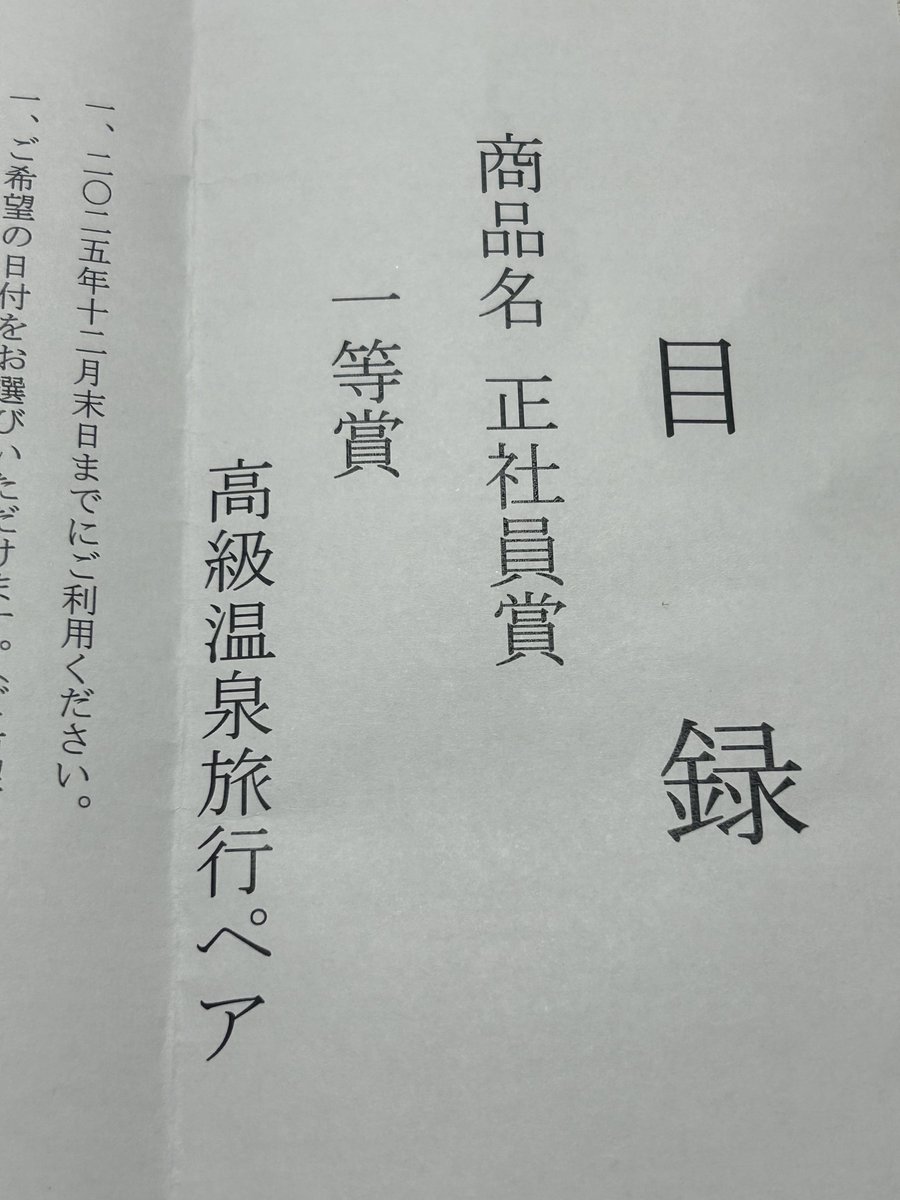 目録
商品名 正社員賞
一等賞
高級温泉旅行ペア
一、二〇二五年十二月末日までにご利用ください。
一、ご希望の日付をお選びいただけます。